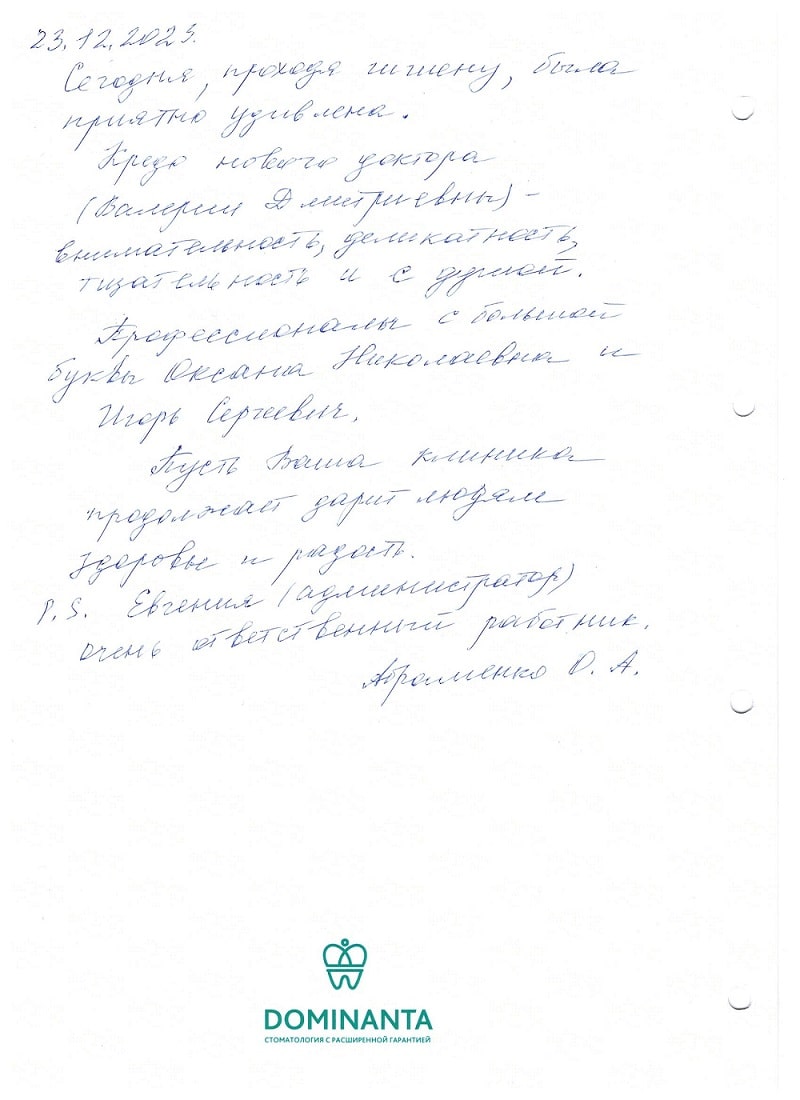 23.12.2023.
Сегодня, проходя гигиену, была
приятно удивлена.
Кредо нового доктора
(Валерии Дмитриевны) -
внимательность, деликатность,
тщательность и с душой.
Профессионалы с большой
буквы Оксана Николаевна и
Игорь Сергеевич.
Пусть Ваша клиника
продолжает дарит людям
здоровье и радость.
P.S. Евгения (администратор)
очень ответственный работник.
Абраменко О. А.
DOMINANTA
СТОМАТОЛОГИЯ С РАСШИРЕННОЙ ГАРАНТИЕЙ